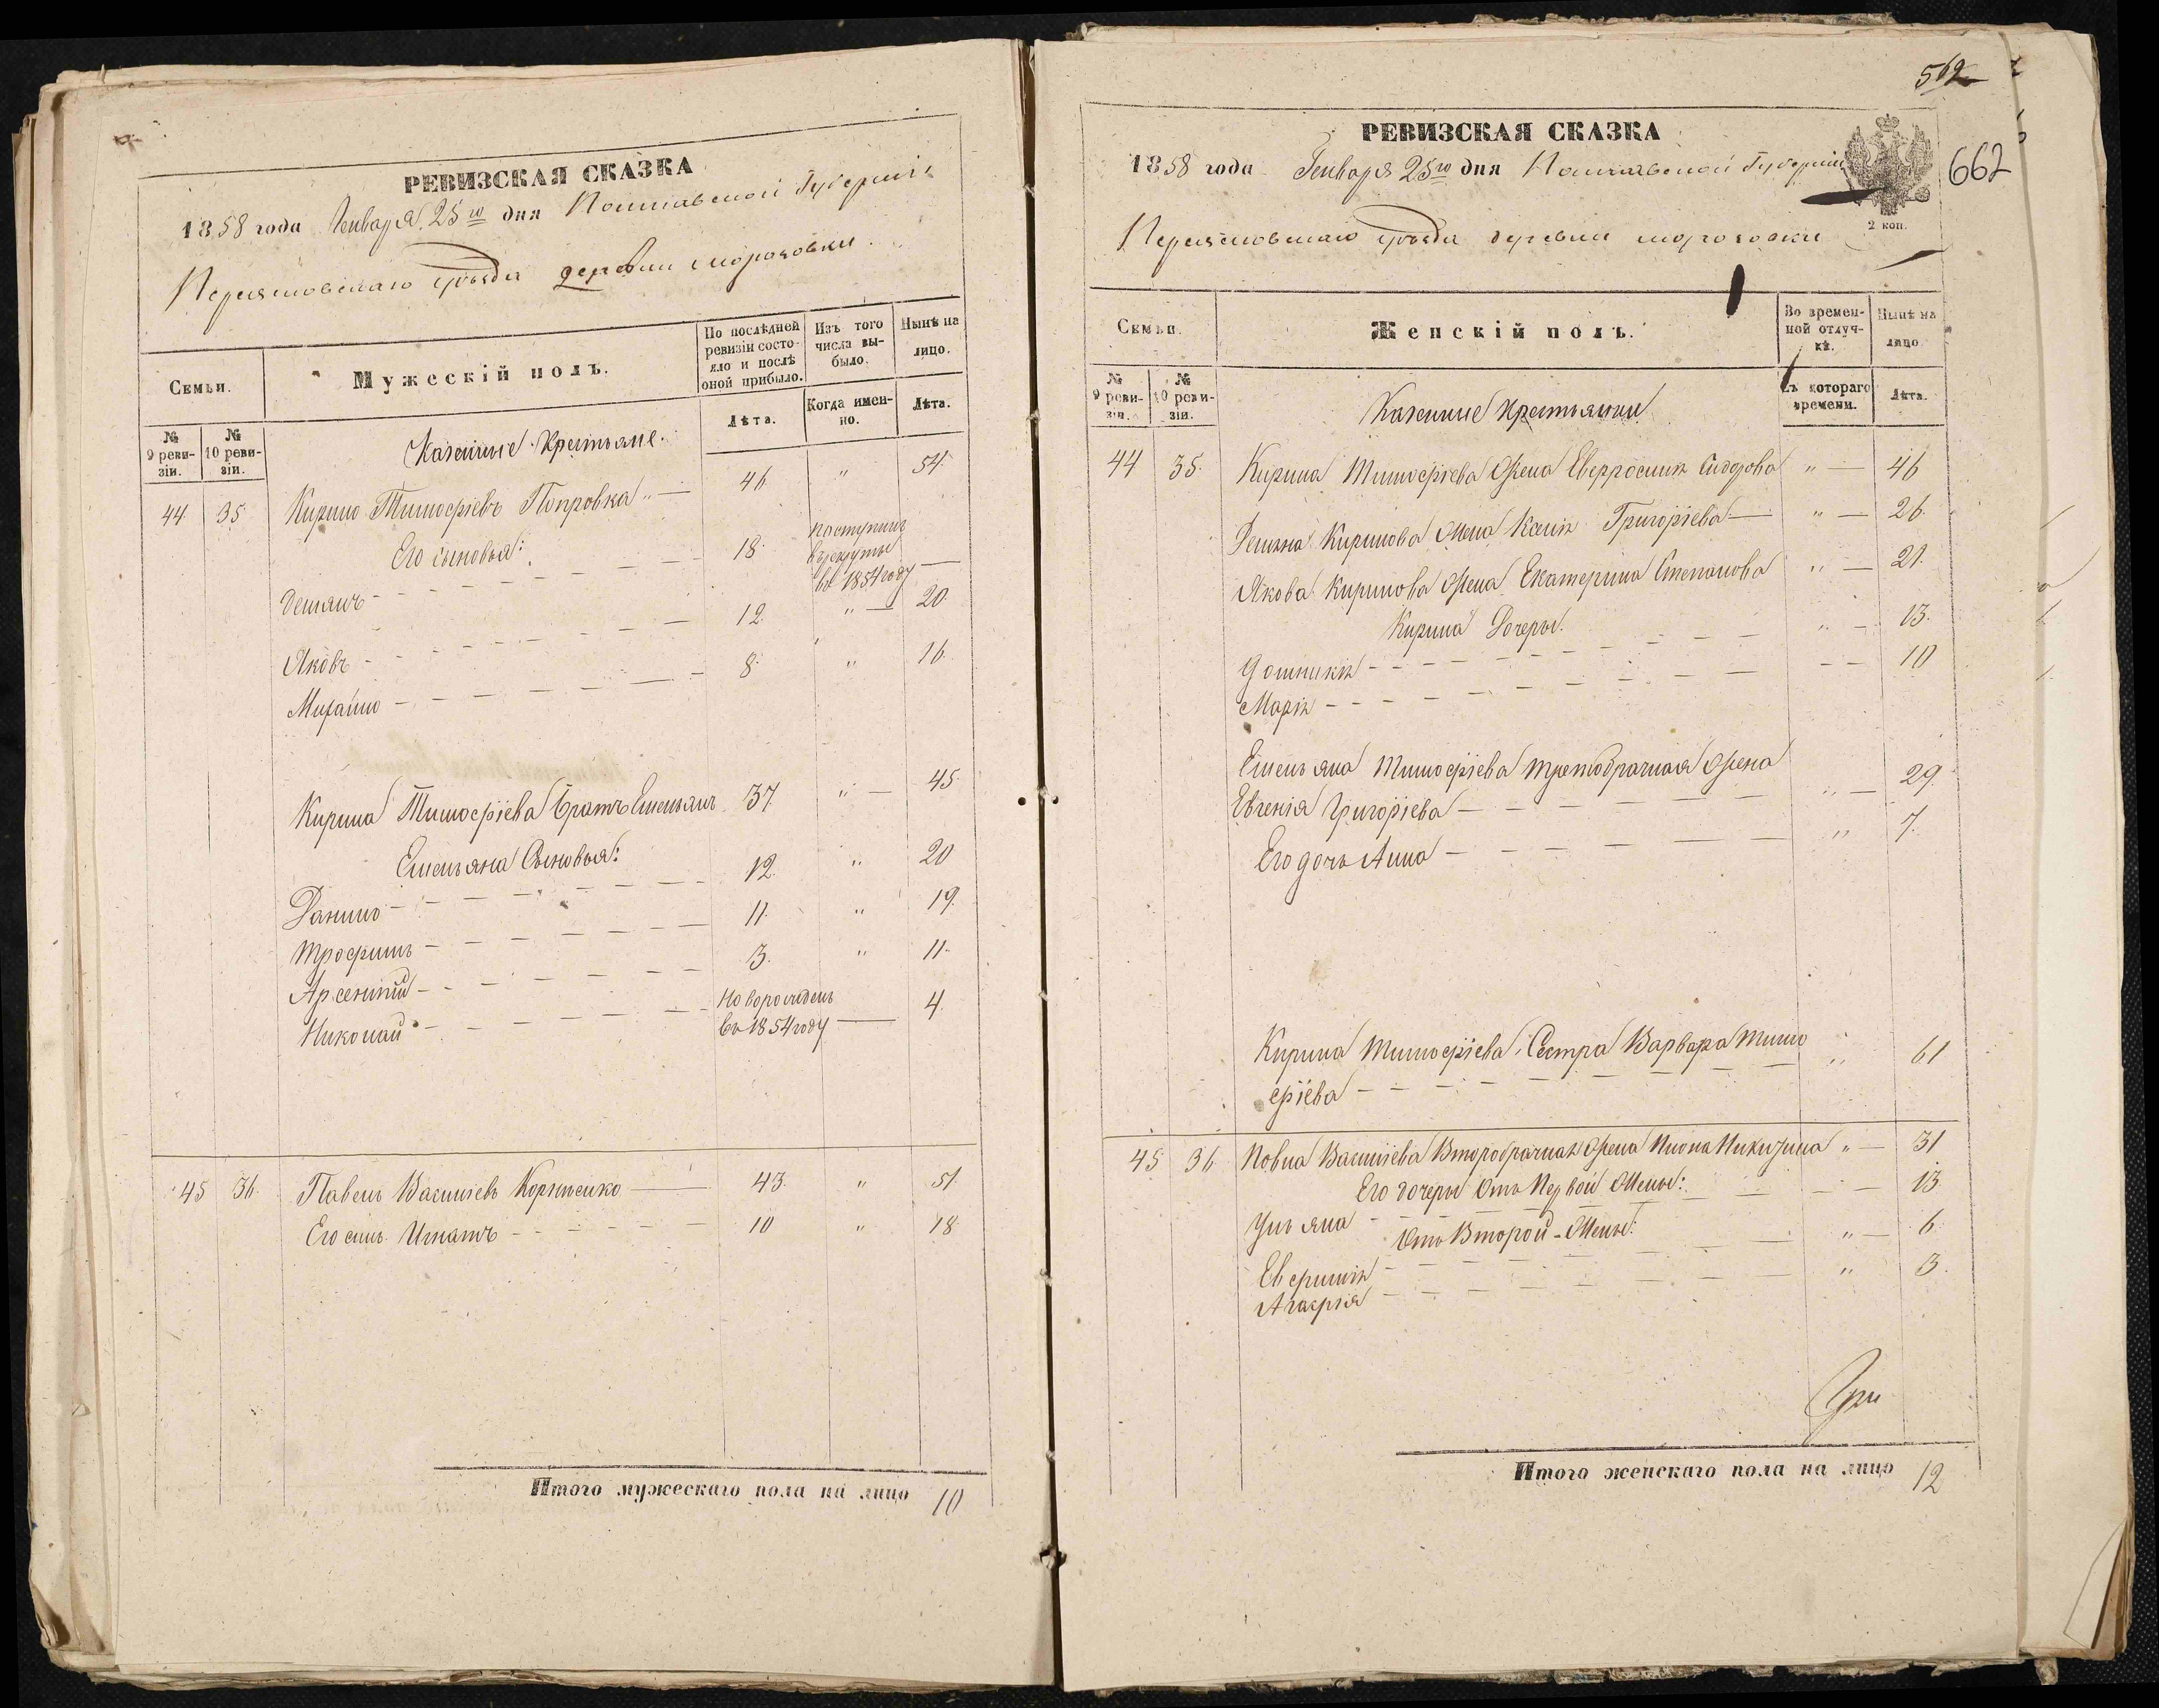 РЕВИЗСКАЯ СКАЗКА
1858 года Генваря 25го дня Полтавской Губерніи
Переяславскаго уѣзда деревни Мороховки
Семьи.
Мужескій полъ.
По послѣдней ревизіи состояло и послѣ оной прибыло.
Изъ того числа выбыло.
Нынѣ на лицо.
№ 9 ревизіи.
№ 10 ревизіи.
Лѣта.
Когда именно.
Лѣта.
Казенные Крестьяне.
44 35 Кирило Тимофѣевъ 46 " 54.
Его сыновья:
Демянъ 18 поступилъ въ рекруты въ 1854 году
Яковъ 12. " 20
Михайло 8. " 16.
Кирила Тимофѣева братъ Емельянъ 37. " 45
Емельяна Сыновья:
Данило 12. " 20
Трофимъ 11. " 19.
Арсеній 3. " 11.
Николай Новорожденъ въ 1854 году 4.
45 36. Павелъ Васильевъ Корніенко 43. " 51.
Его сынъ Игнатъ 10 " 18
Итого мужескаго пола на лицо 10
562
662
РЕВИЗСКАЯ СКАЗКА
1858 года Генваря 25го дня Полтавской Губерніи
2 коп.
Переяславскаго уѣзда деревни Мороховки
Семьи.
Женскій полъ.
Во временной отлучкѣ.
Нынѣ на лицо
№ 9 ревизіи.
№ 10 ревизіи.
Съ котораго времени.
Лѣта.
Казенные Крестьянки
44 35. Кирила Тимофѣева Жена Евфросинія Сидорова " 46
Демяна Кирилова Жена Ксенія Григоріева " 26.
Якова Кирилова Жена Екатерина Степанова " 21.
Кирила Дочеры.
Домникія " 13.
Марія 10
Емельяна Тимофѣева третобрачная Жена
Евгенія Григоріева " 29.
Его дочь Анна " 7.
Кирила Тимофѣева Сестра Варвара Тимо
фѣева " 61
45 36 Павла Васильева Второбрачная Жена Никитина " 31
Его дочеры Отъ Первой Жены:
Ульяна 13
Отъ Второй Жены:
Евфимія " 6.
Агафія " 3.
Итого женскаго пола на лицо 12